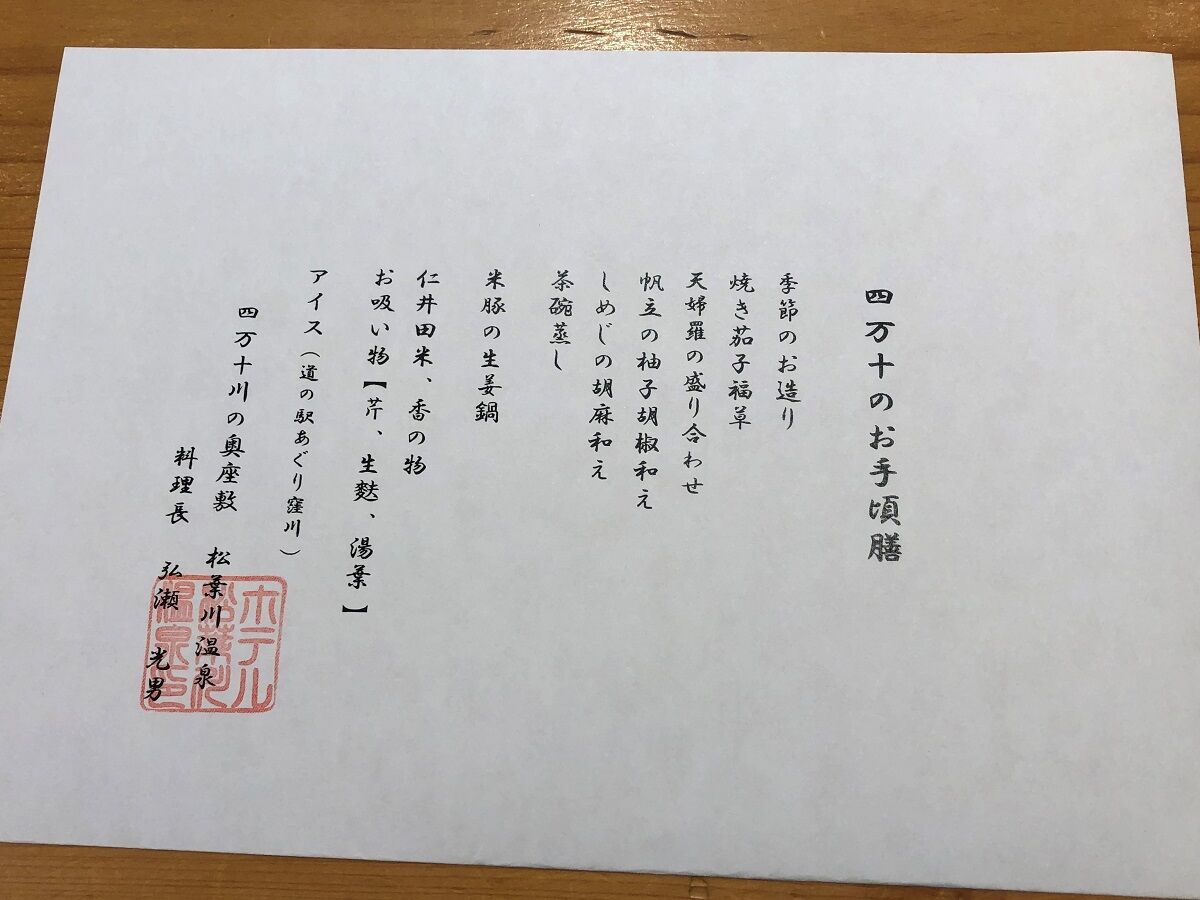 四万十のお手頃膳
季節のお造り
焼き茄子福草
天婦羅の盛り合わせ
帆立の柚子胡椒和え
しめじの胡麻和え
茶碗蒸し
米豚の生姜鍋
仁井田米、香の物
お吸い物【芹、生麩、湯葉】
アイス(道の駅あぐり窪川)
四万十川の奥座敷 松葉川温泉
料理長 弘瀬 光男
ホテル
松葉川
温泉之印